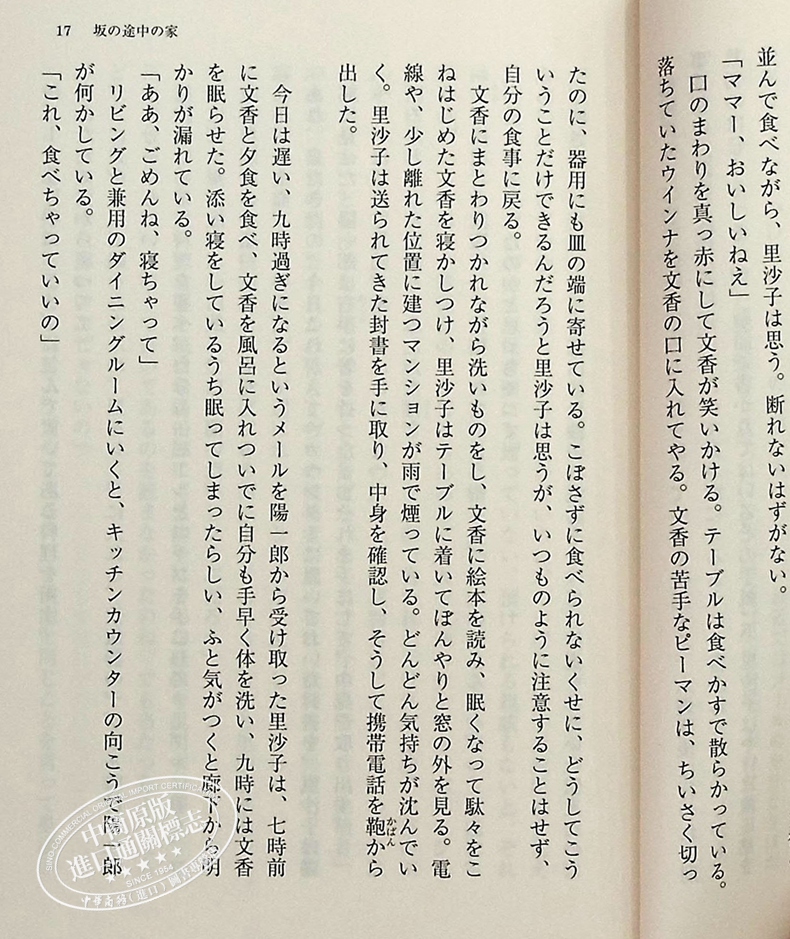 並んで食べながら、里沙子は思う。断れないはずがない。
「ママー、おいしいねえ」
口のまわりを真っ赤にして文香が笑いかける。テーブルは食べかすで散らかっている。
落ちていたウインナを文香の口に入れてやる。文香の苦手なピーマンは、ちいさく切っ
17 坂の途中の家
たのに、器用にも皿の端に寄せている。こぼさずに食べられないくせに、どうしてこう
いうことだけできるんだろうと里沙子は思うが、いつものように注意することはせず、
自分の食事に戻る。
文香にまとわりつかれながら洗いものをし、文香に絵本を読み、眠くなって駄々をこ
ねはじめた文香を寝かしつけ、里沙子はテーブルに着いてぼんやりと窓の外を見る。電
線や、少し離れた位置に建つマンションが雨で煙っている。どんどん気持ちが沈んでい
く。里沙子は送られてきた封書を手に取り、中身を確認し、そうして携帯電話を鞄から
かばん
出した。
今日は遅い、九時過ぎになるというメールを陽一郎から受け取った里沙子は、七時前
に文香と夕食を食べ、文香を風呂に入れついでに自分も手早く体を洗い、九時には文香
を眠らせた。添い寝をしているうち眠ってしまったらしい、ふと気がつくと廊下から明
かりが漏れている。
「ああ、ごめんね、寝ちゃって」
リビングと兼用のダイニングルームにいくと、キッチンカウンターの向こうで陽一郎
が何かしている。
「これ、食べちゃっていいの」
SINO-COMMERCIAL IMPORT CERTIFICATION
中商原版
進口通關標志
SINCE 1954
中華商務(進口)圖書專用